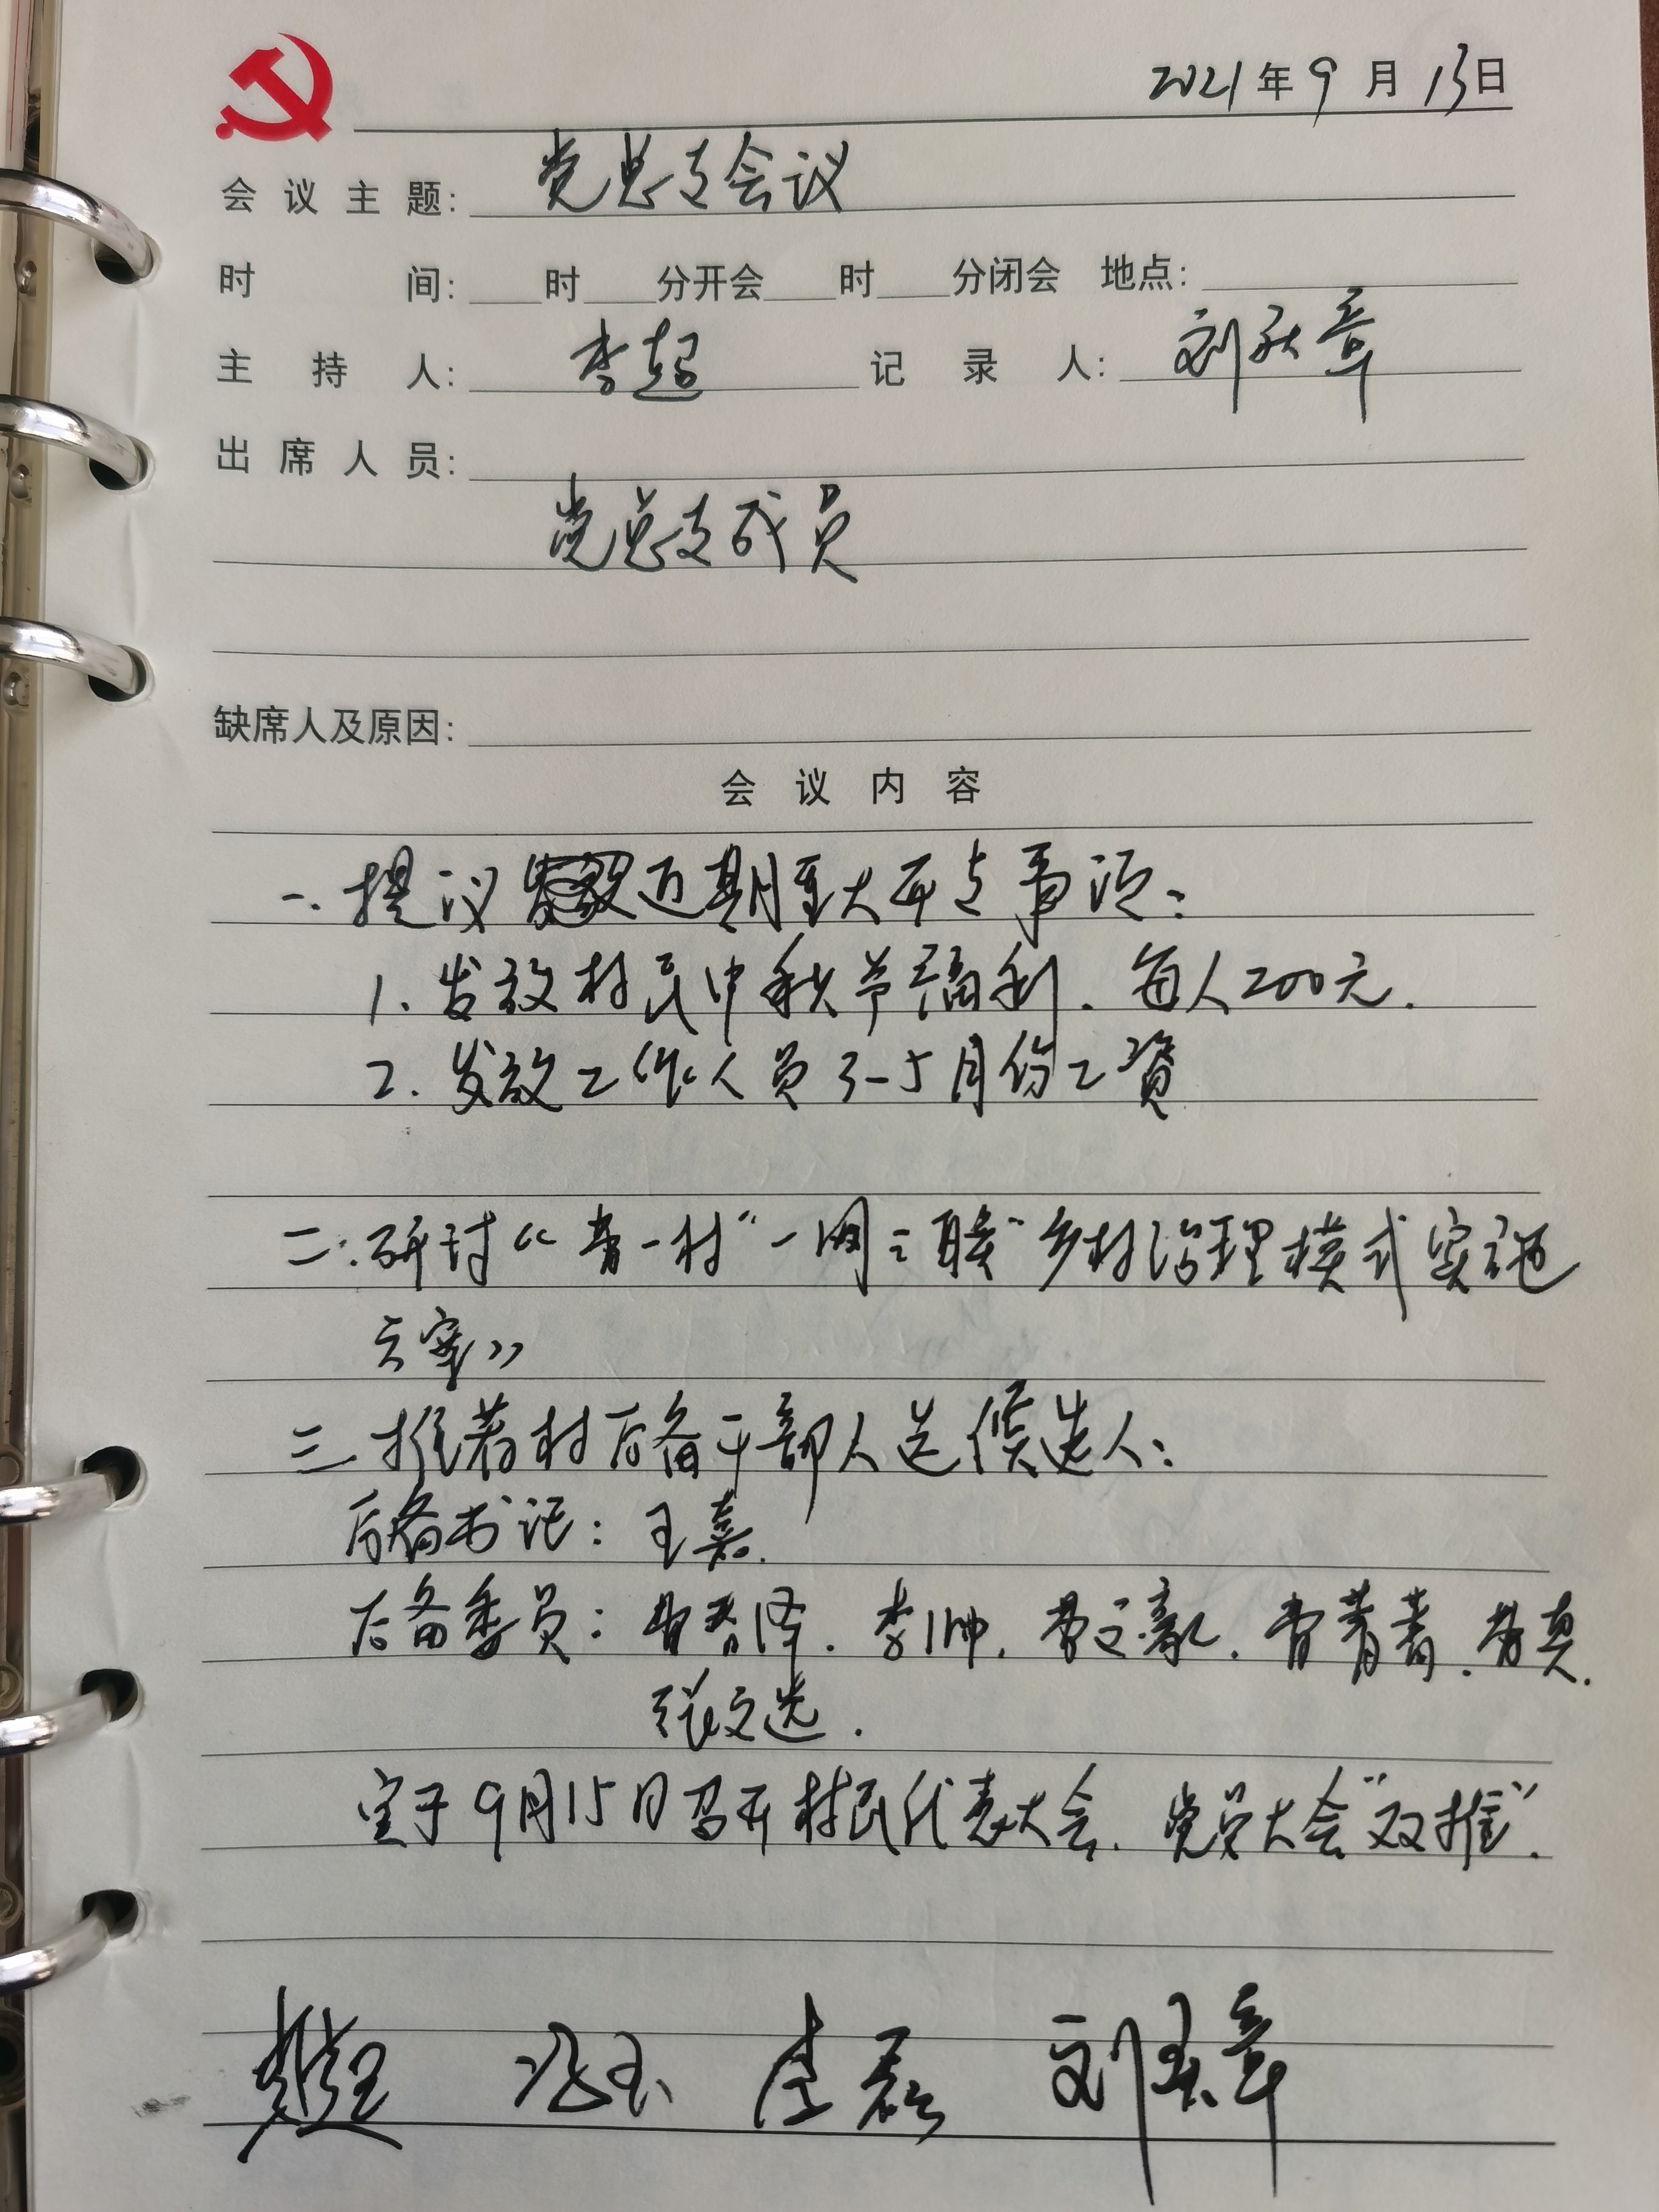 2021年9月13日
会议主题: 党总支会议
时间: 时 分开会 时 分闭会 地点:
主持人: 李超 记录人: 刘秋章
出席人员:
党总支成员
缺席人及原因:
会议内容
一.提议近期重大开支事项:
1.发放村民中秋节福利.每人200元.
2.发放工作人员3-5月份工资
二.研讨《曹一村"一网三联"乡村治理模式实施
方案》
三.推荐村后备干部人选候选人:
后备书记: 王嘉.
后备委员: 曹春泽.李帅.曹文豪.曹菁菁.曹真.
张文选.
定于9月15日召开村民代表大会.党员大会"双推".
李超 冯玉 李磊 刘秋章